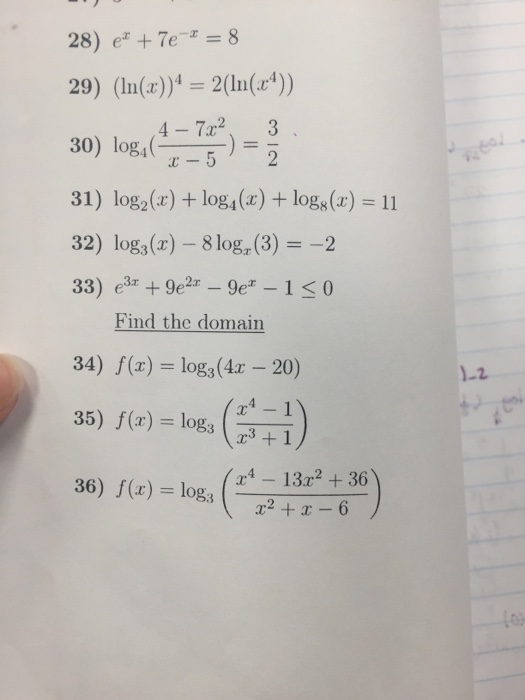 28) eˣ + 7e⁻ˣ = 8
29) (ln(x))⁴ = 2(ln(x⁴))
30) log₄((4 − 7x²)/(x − 5)) = 3/2
31) log₂(x) + log₄(x) + log₈(x) = 11
32) log₃(x) − 8 logₓ(3) = −2
33) e³ˣ + 9e²ˣ − 9eˣ − 1 ≤ 0
Find the domain
34) f(x) = log₃(4x − 20)
35) f(x) = log₃((x⁴ − 1)/(x³ + 1))
36) f(x) = log₃((x⁴ − 13x² + 36)/(x² + x − 6))